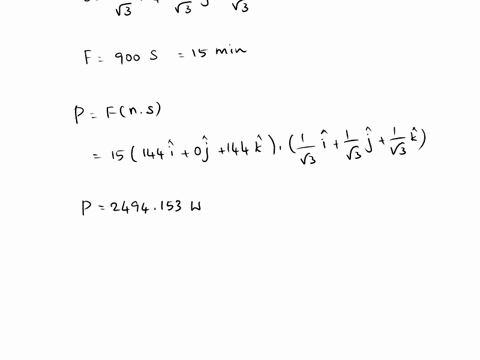 √3 √3 √3
F = 900 S = 15 min
P = F(n.s)
= 15 (144 î + 0ĵ + 144 k̂) . (1/√3 î + 1/√3 ĵ + 1/√3 k̂)
P = 2494.153 W